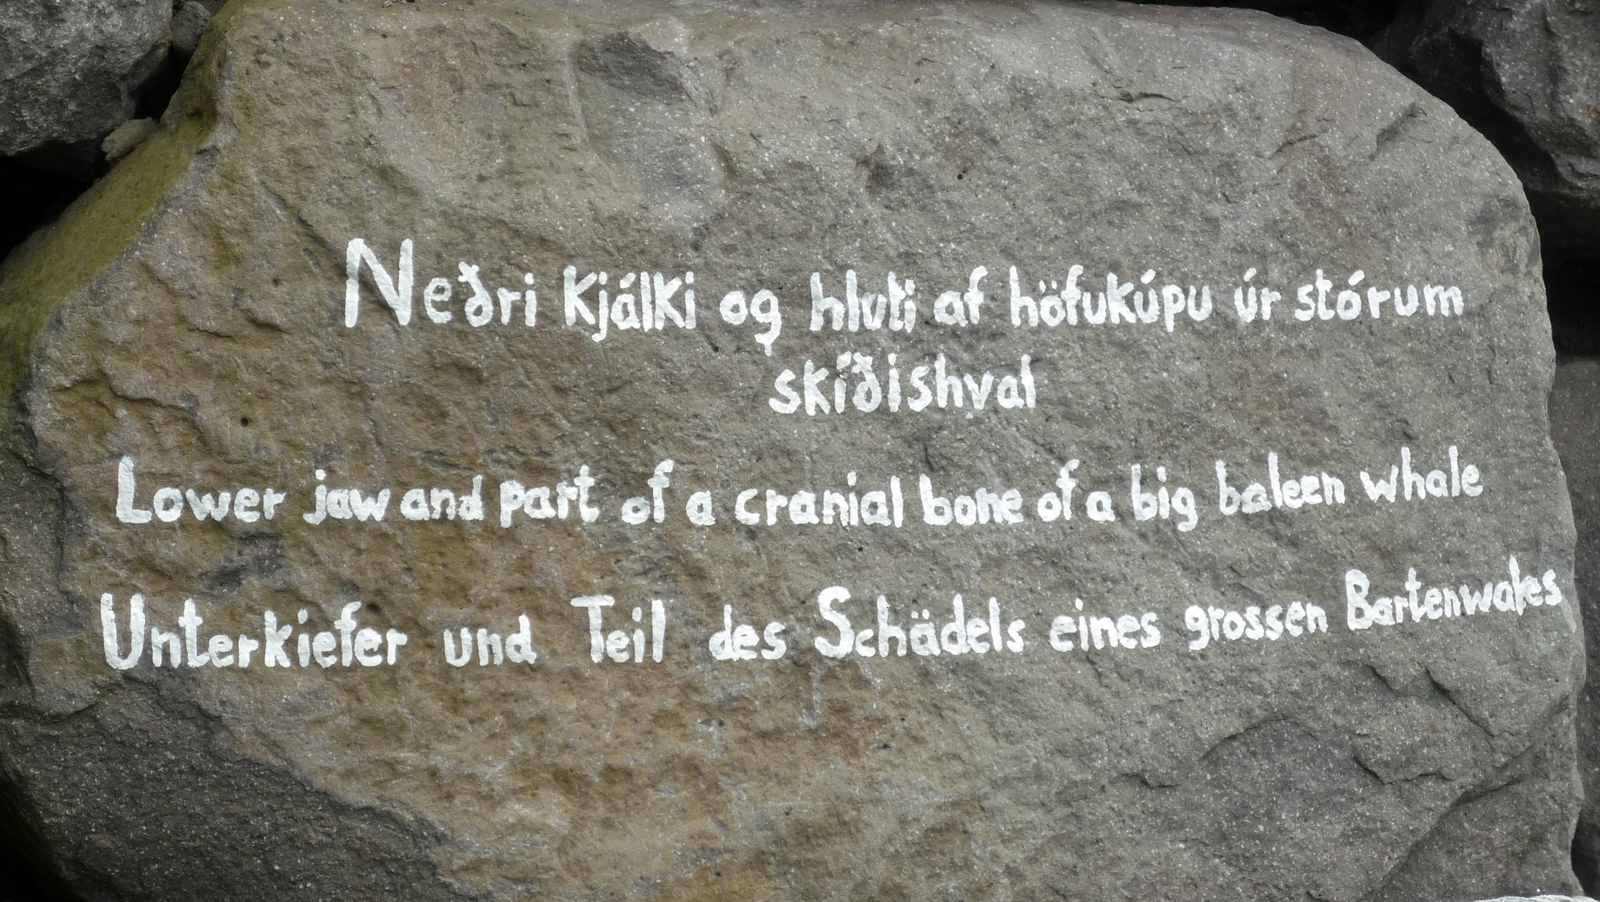 Neðri kjálki og hluti af höfukúpu úr stórum
skíðishval
Lower jaw and part of a cranial bone of a big baleen whale
Unterkiefer und Teil des Schädels eines grossen Bartenwales